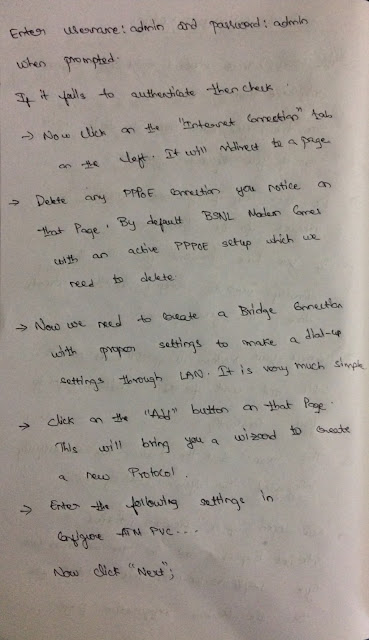 Enter username: admin and password: admin
when prompted.
If it fails to authenticate then check.
→ Now click on the "Internet Connection" tab
on the left. It will redirect to a page
→ Delete any PPPoE connection you notice on
that Page. By default BSNL Modem Comes
with an active PPPOE setup which we
need to delete.
→ Now we need to create a Bridge Connection
with proper settings to make a dial-up
settings through LAN. It is very much simple
→ click on the "Add" button on that Page.
This will bring you a wizard to create
a new Protocol.
→ Enter the following settings in
Configure ATM PVC...
Now click "Next";